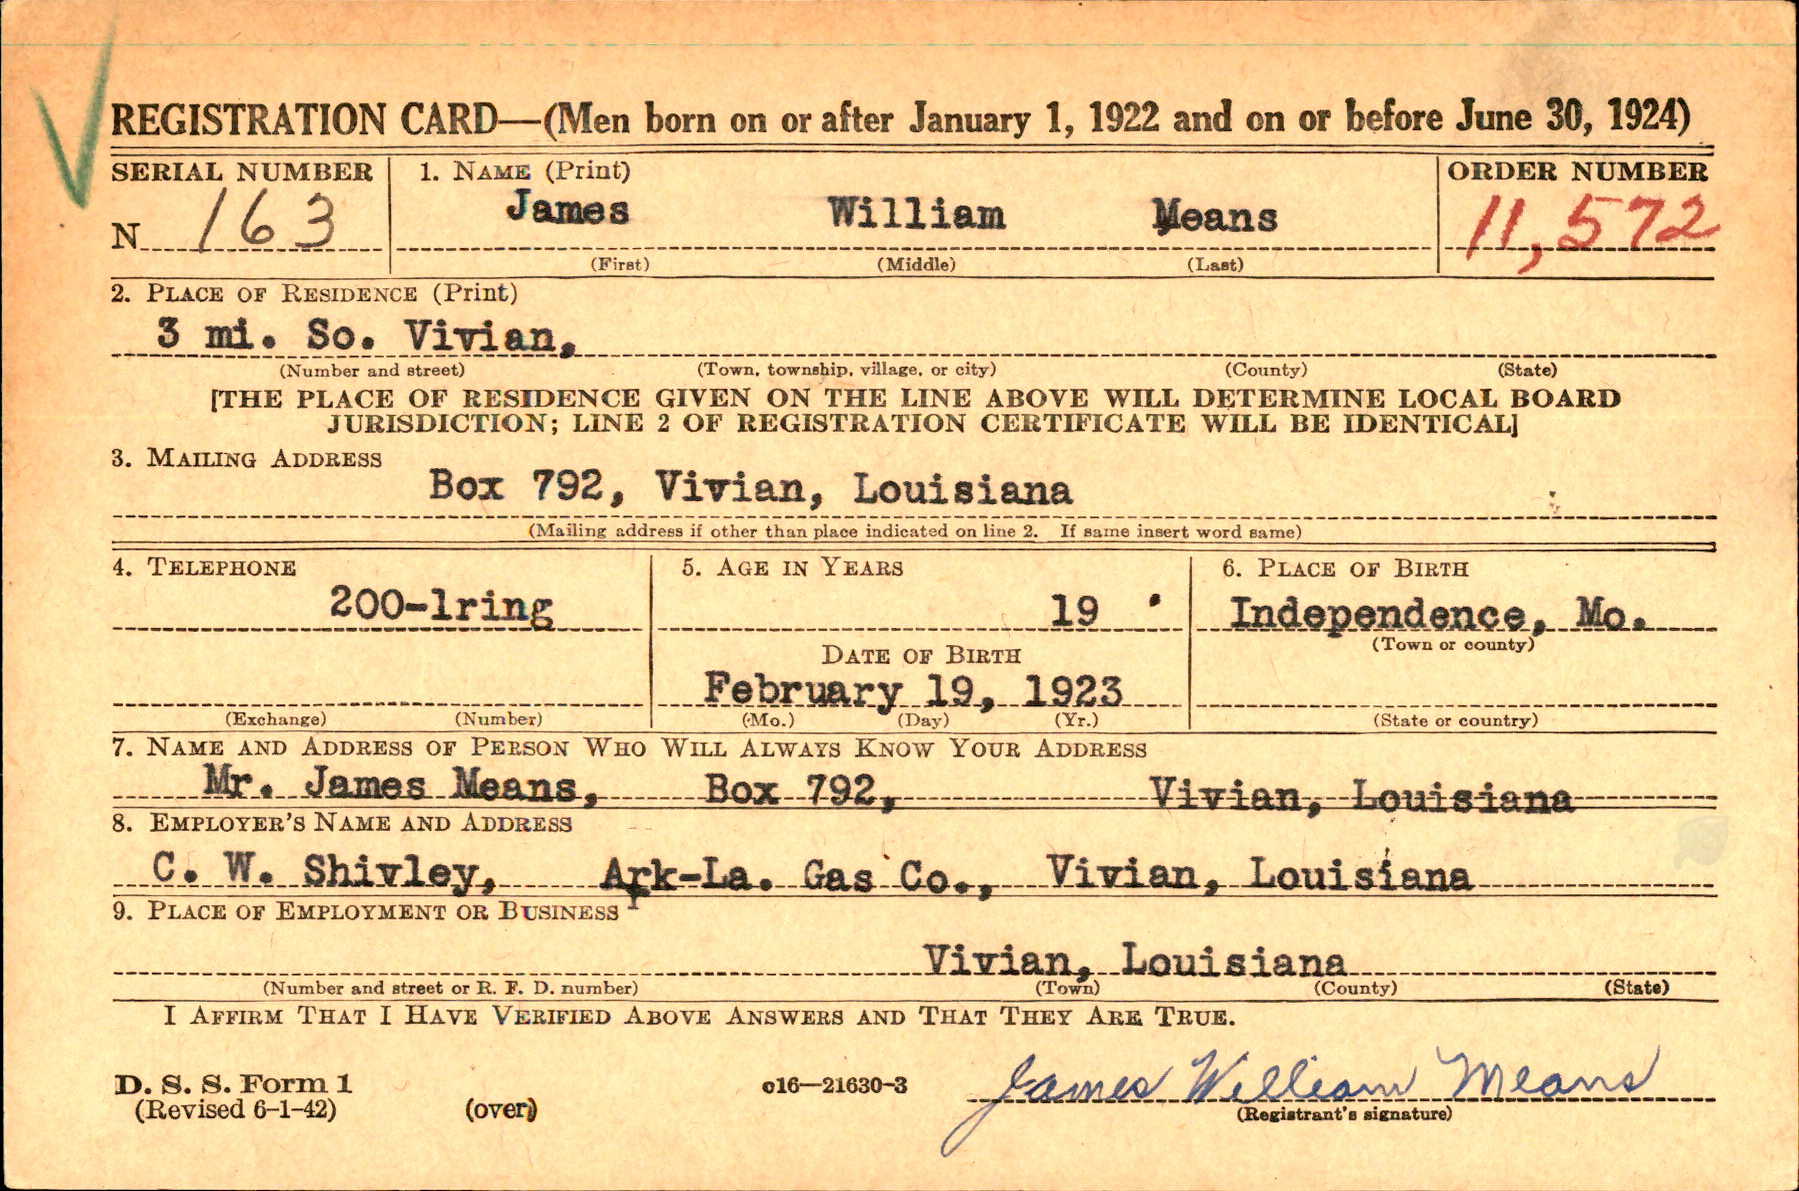 REGISTRATION CARD—(Men born on or after January 1, 1922 and on or before June 30, 1924)
SERIAL NUMBER
1. NAME (Print)
ORDER NUMBER
N 163
James William Means
11,572
(First) (Middle) (Last)
2. PLACE OF RESIDENCE (Print)
3 mi. So. Vivian,
(Number and street) (Town, township, village, or city) (County) (State)
[THE PLACE OF RESIDENCE GIVEN ON THE LINE ABOVE WILL DETERMINE LOCAL BOARD
JURISDICTION; LINE 2 OF REGISTRATION CERTIFICATE WILL BE IDENTICAL]
3. MAILING ADDRESS
Box 792, Vivian, Louisiana
(Mailing address if other than place indicated on line 2. If same insert word same)
4. TELEPHONE
5. AGE IN YEARS
6. PLACE OF BIRTH
200-1ring
19
Independence, Mo.
(Town or county)
DATE OF BIRTH
February 19, 1923
(Exchange) (Number)
(Mo.) (Day) (Yr.)
(State or country)
7. NAME AND ADDRESS OF PERSON WHO WILL ALWAYS KNOW YOUR ADDRESS
Mr. James Means, Box 792, Vivian, Louisiana
8. EMPLOYER'S NAME AND ADDRESS
C. W. Shivley, Ark-La. Gas Co., Vivian, Louisiana
9. PLACE OF EMPLOYMENT OR BUSINESS
Vivian, Louisiana
(Number and street or R. F. D. number) (Town) (County) (State)
I AFFIRM THAT I HAVE VERIFIED ABOVE ANSWERS AND THAT THEY ARE TRUE.
D. S. S. Form 1
(Revised 6-1-42)
(over)
c16—21630-3
James William Means
(Registrant's signature)